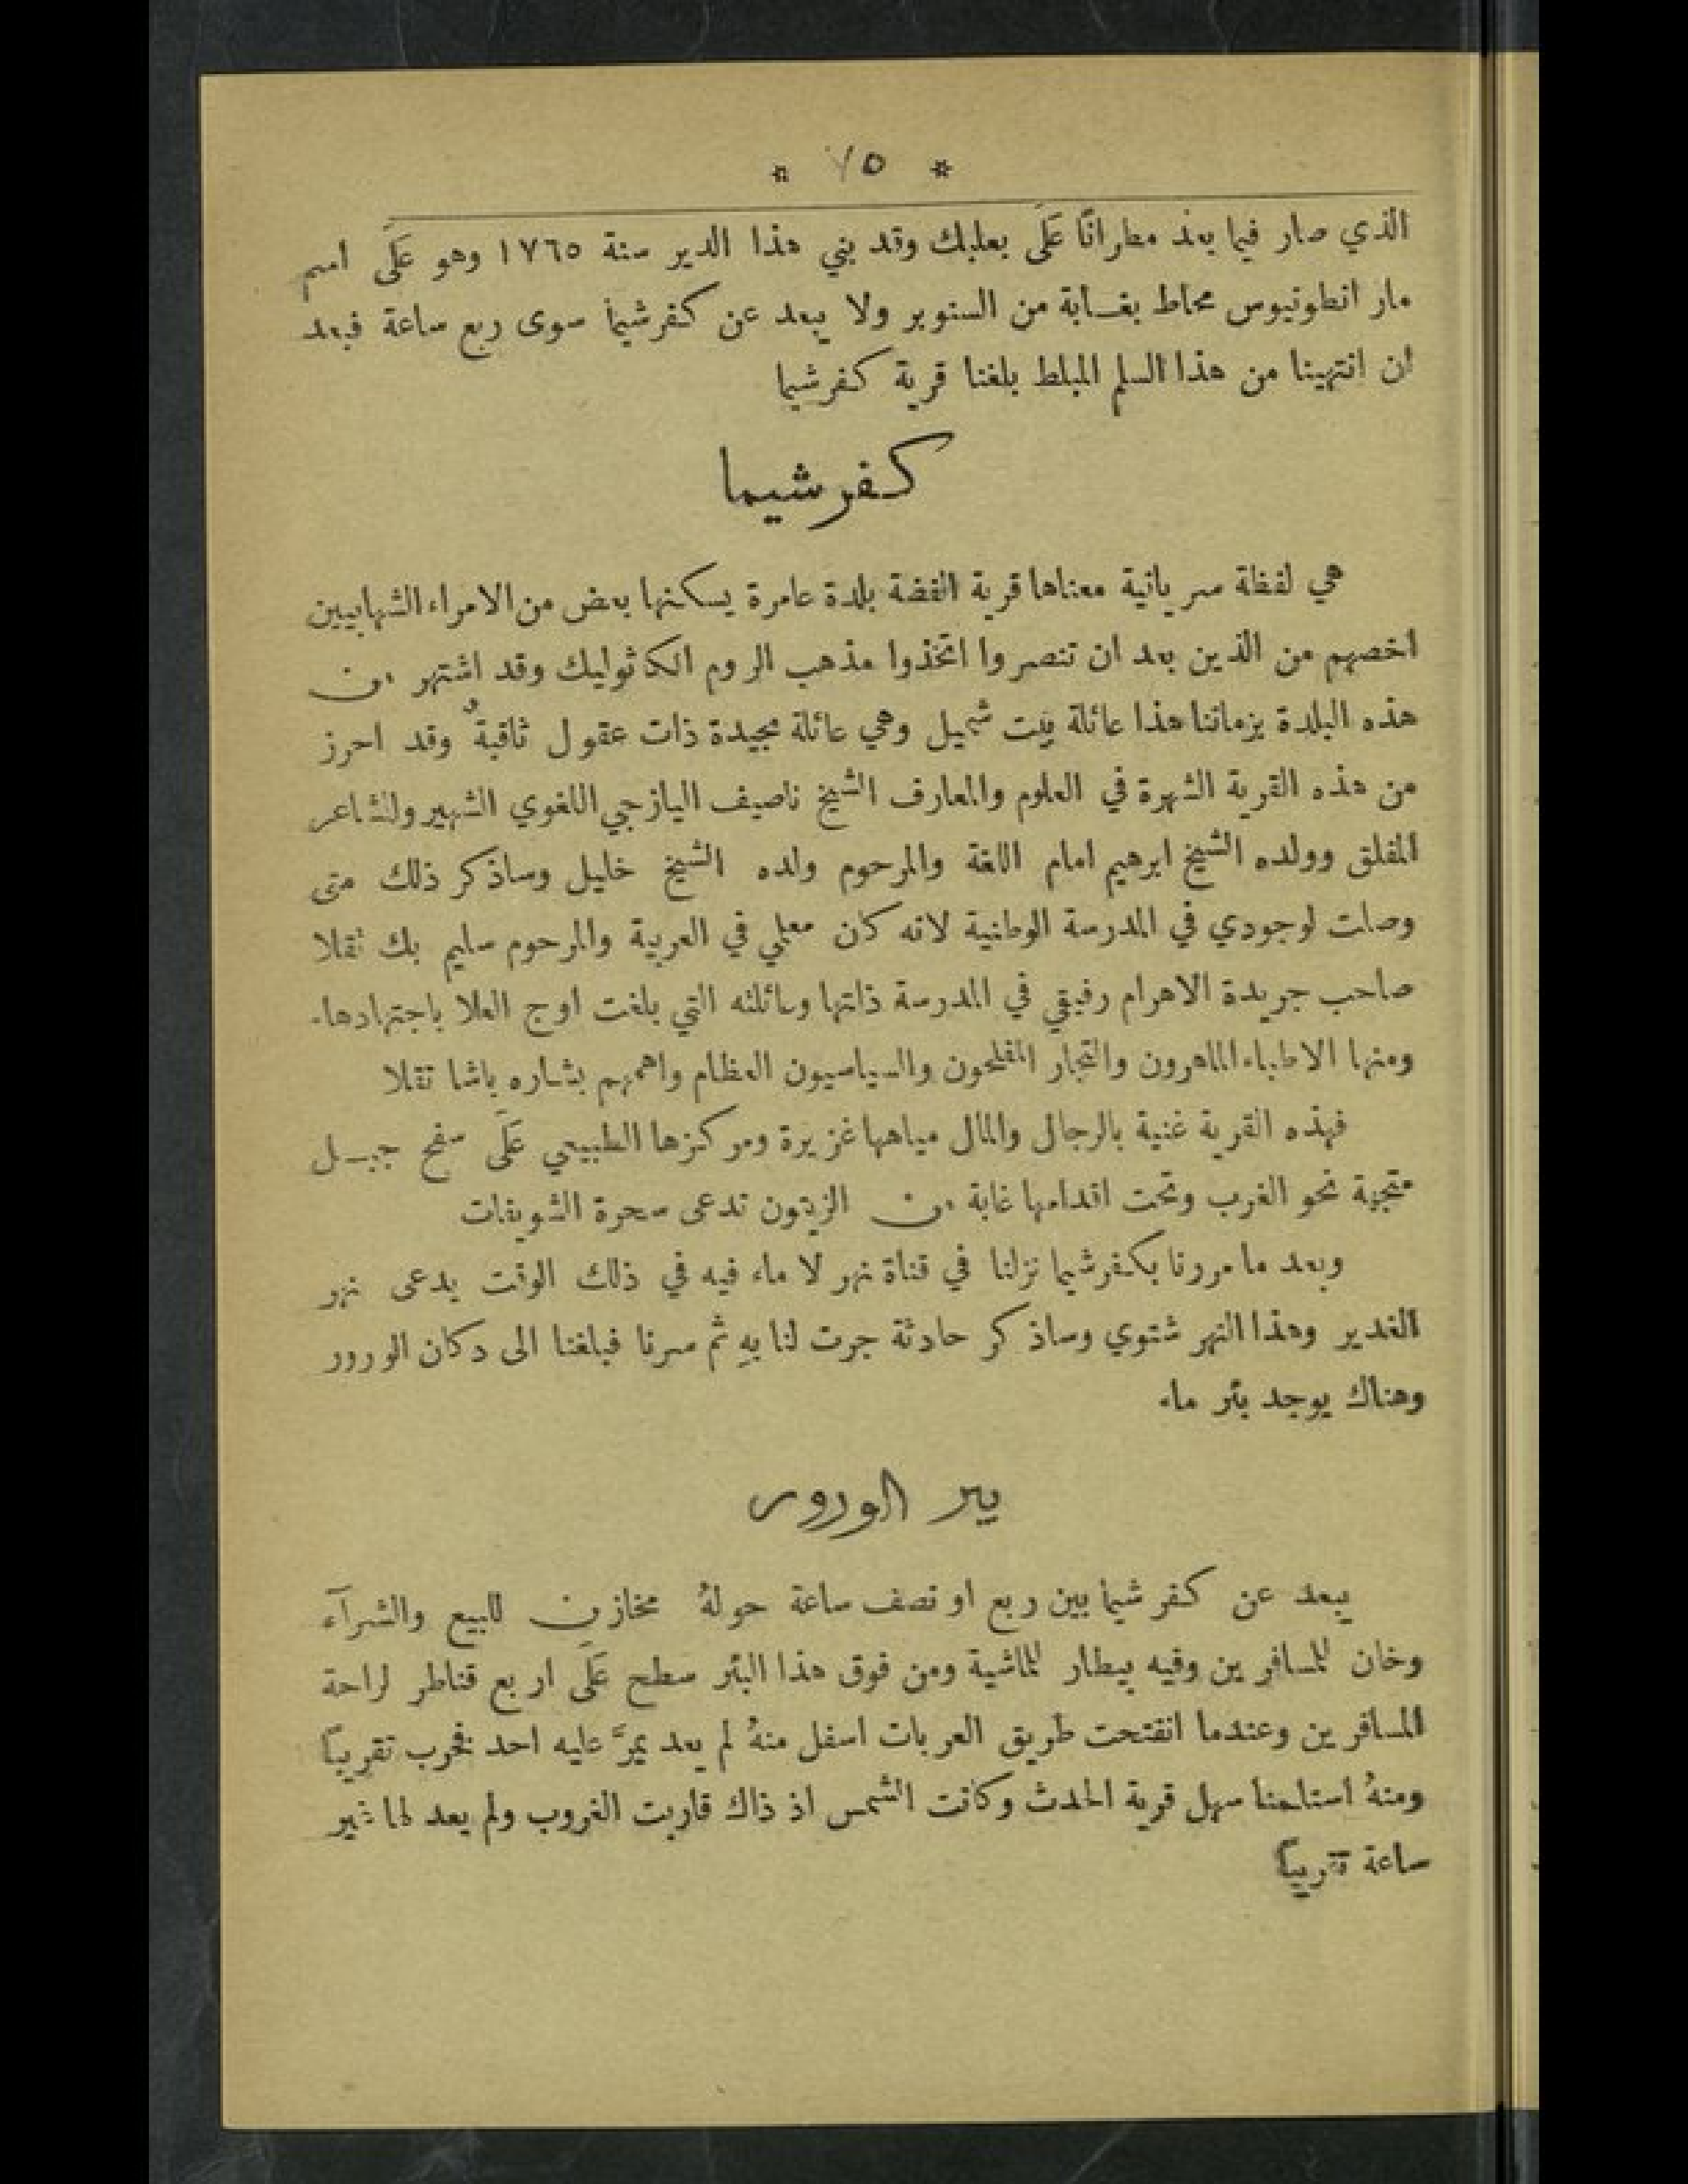 * ٧٥ *
الذي صار فيما بعد مطرانًا عَلَى بعلبك وقد بني هذا الدير سنة ١٧٦٥ وهو عَلَى اسم
مار انطونيوس محاط بغابة من السنوبر ولا يبعد عن كفرشيما سوى ربع ساعة فبعد
ان انتهينا من هذا السلم المبلط بلغنا قرية كفرشيما
كفرشيما
هي لفظة سريانية معناها قرية الفضة بلدة عامرة يسكنها بعض من الامراء الشهابيين
اخصهم من الذين بعد ان تنصروا اتخذوا مذهب الروم الكاثوليك وقد اشتهر من
هذه البلدة بزماننا هذا عائلة بيت شميل وهي عائلة مجيدة ذات عقول ثاقبةٌ وقد احرز
من هذه القرية الشهرة في العلوم والمعارف الشيخ ناصيف اليازجي اللغوي الشهير والشاعر
المفلق وولده الشيخ ابرهيم امام اللغة والمرحوم ولده الشيخ خليل وساذكر ذلك متى
وصلت لوجودي في المدرسة الوطنية لانه كان معلمي في العربية والمرحوم سليم بك تقلا
صاحب جريدة الاهرام رفيقي في المدرسة ذاتها وعائلته التي بلغت اوج العلا باجتهادها.
ومنها الاطباء الماهرون والتجار المفلحون والسياسيون العظام واهمهم بشاره باشا تقلا
فهذه القرية غنية بالرجال والمال مياهها غزيرة ومركزها الطبيعي عَلَى سفح جبل
متجهة نحو الغرب وتحت اقدامها غابة من الزيتون تدعى سحرة الشويفات
وبعد ما مررنا بكفرشيما نزلنا في قناة نهر لا ماء فيه في ذلك الوقت يدعى نهر
الغدير وهذا النهر شتوي وساذكر حادثة جرت لنا بهِ ثم سرنا فبلغنا الى دكان الورور
وهناك يوجد بئر ماء
بير الورور
يبعد عن كفرشيما بين ربع او نصف ساعة حولهُ مخازن للبيع والشرآء
وخان للمسافرين وفيه بيطار للماشية ومن فوق هذا البئر سطح عَلَى اربع قناطر لراحة
المسافرين وعندما انفتحت طريق العربات اسفل منهُ لم يعد يمرَّ عليه احد فخرب تقريبًا
ومنهُ استلمنا سهل قرية الحدث وكانت الشمس اذ ذاك قاربت الغروب ولم يعد لها غير
ساعة تقريبًا